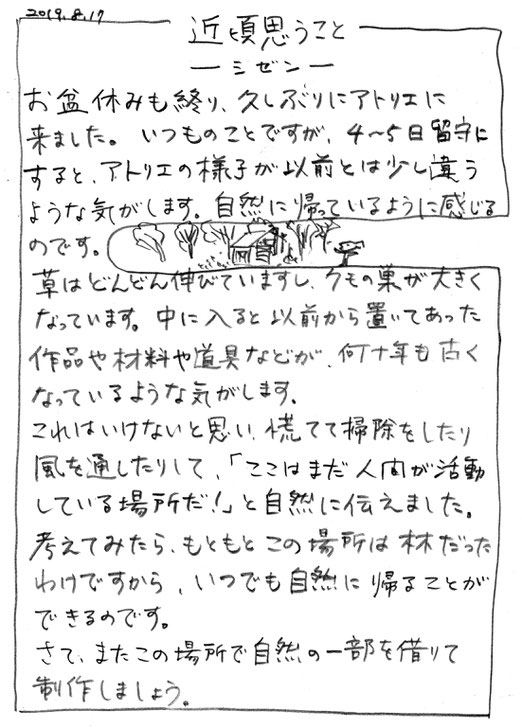 2019.8.17
近頃思うこと
ーシゼンー
お盆休みも終り、久しぶりにアトリエに
来ました。いつものことですが、4〜5日留守に
すると、アトリエの様子が以前とは少し違う
ような気がします。自然に帰っているように感じる
のです。
草はどんどん伸びていますし、クモの巣が大きく
なっています。中に入ると以前から置いてあった
作品や材料や道具などが、何十年も古く
なっているような気がします。
これはいけないと思い、慌てて掃除をしたり
風を通したりして、「ここはまだ人間が活動
している場所だ!」と自然に伝えました。
考えてみたら、もともとこの場所は林だった
わけですから、いつでも自然に帰ることが
できるのです。
さて、またこの場所で自然の一部を借りて
制作しましょう。